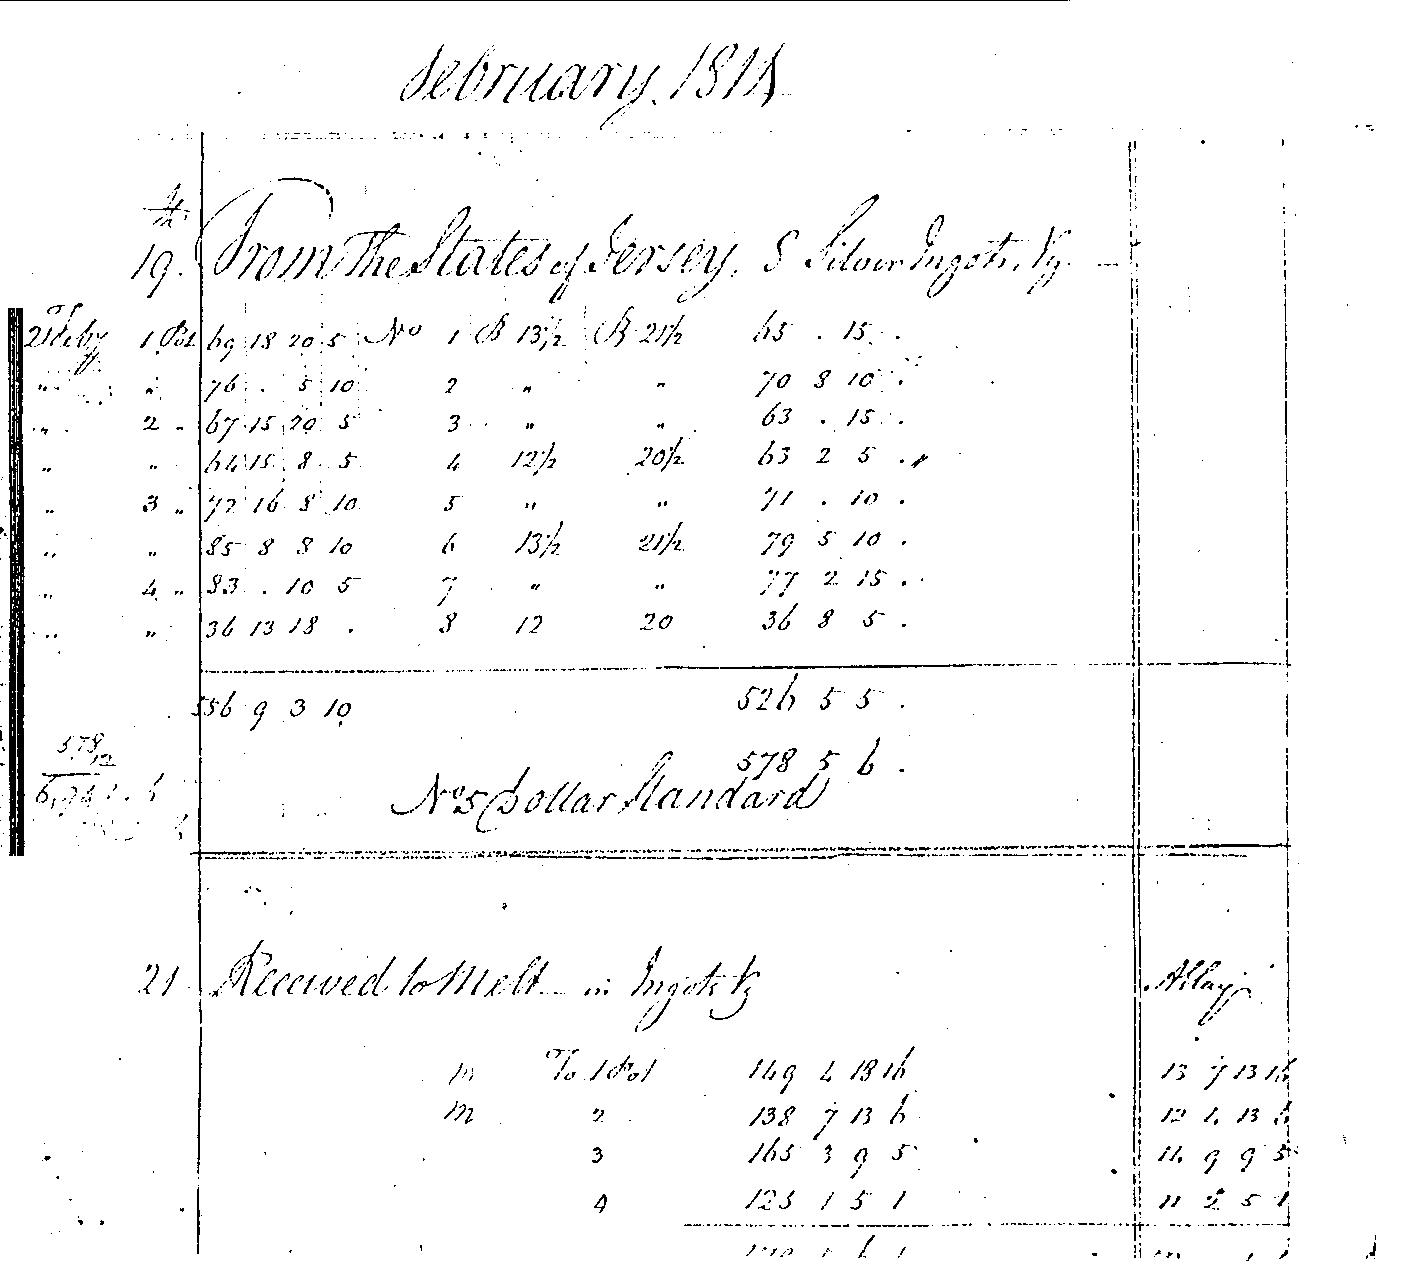 February 1814
19. From The States of Jersey, 8 Silver Ingots, Vz.
21 Feby 1 Pot 69 18 20 5 No 1 B 13½ B 21½ 65 . 15 .
" " 76 . 5 10 2 " " 70 8 10 .
" 2 " 67 15 20 5 3 " " 63 . 15 .
" " 64 15 8 5 4 12½ 20½ 63 2 5 .
" 3 " 72 16 8 10 5 " " 71 . 10 .
" " 85 8 8 10 6 13½ 21½ 79 5 10 .
" 4 " 83 . 10 5 7 " " 77 2 15 .
" " 36 13 18 . 8 12 20 36 8 5 .
556 9 3 10 526 5 5 .
578 5 6 .
578
12
No 5 Dollar Standard
21 Received to Melt in Ingots Vz Allay
m To 1 Pot 149 4 18 16 13 7 13 16
m 2 138 7 13 6 12 4 13 6
3 165 3 9 5 14 9 9 5
4 125 1 5 1 11 2 5 1